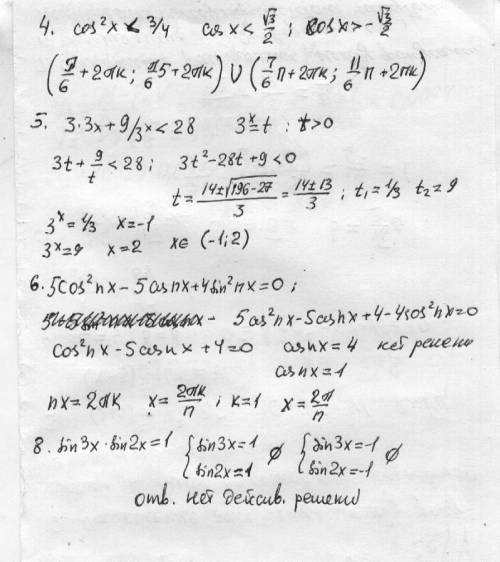 4. cos²x < 3/4 cos x < √3/2 ; cos x > -√3/2
(π/6 + 2πk; π5/6 + 2πk) ∪ (7/6 π + 2πk; 11/6 π + 2πk)
5. 3·3x + 9/3x < 28 3^x = t : t > 0
3t + 9/t < 28; 3t² - 28t + 9 < 0
t = (14 ± √(196 - 27))/3 = (14 ± 13)/3 ; t₁ = 1/3 t₂ = 9
3^x = 1/3 x = -1
3^x = 9 x = 2 x ∈ (-1; 2)
6. 5cos²пx - 5cosпx + 4sin²пx = 0 ;
5cos²пx - 5cosпx + 4 - 4cos²пx = 0
cos²пx - 5cosпx + 4 = 0 cosпx = 4 нет решени
cosпx = 1
пx = 2πk x = 2πk/п ; k = 1 x = 2π/п
8. sin3x·sin2x = 1 { sin3x = 1 sin2x = 1 ∅ { sin3x = -1 sin2x = -1 ∅
отв. нет дейсив. решени